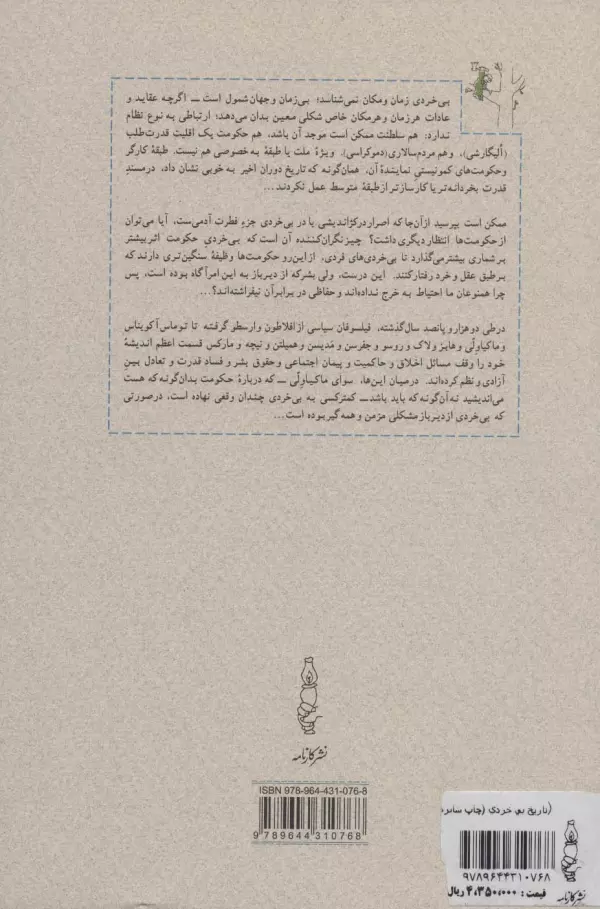 بی‌خردی زمان و مکان نمی‌شناسد؛ بی‌زمان و جهان شمول است ــ اگرچه عقاید و
عادات هر زمان و هر مکان خاص شکلی معین بدان می‌دهد؛ ارتباطی به نوع نظام
ندارد: هم سلطنت ممکن است موجد آن باشد، هم حکومت یک اقلیت قدرت‌طلب
(اُلیگارشی)، و هم مردم‌سالاری (دموکراسی). ویژهٔ ملت یا طبقهٔ به خصوصی هم نیست. طبقهٔ کارگر
و حکومت‌های کمونیستیِ نمایندهٔ آن، همان‌گونه که تاریخ دوران اخیر به خوبی نشان داد، در مسندِ
قدرت بخردانه‌تر یا کارسازتر از طبقهٔ متوسط عمل نکردند...
ممکن است بپرسید از آن‌جا که اصرار در کژاندیشی یا در بی‌خردی جزءِ فطرت آدمی‌ست، آیا می‌توان
از حکومت‌ها انتظار دیگری داشت؟ چیز نگران‌کننده آن است که بی‌خردیِ حکومت اثر بیشتر
بر شماری بیشتر می‌گذارد تا بی‌خردی‌های فردی. از این‌رو حکومت‌ها وظیفهٔ سنگین‌تری دارند که
بر طبق عقل و خرد رفتار کنند. این درست، ولی بشر که از دیرباز به این امر آگاه بوده است، پس
چرا همنوعان ما احتیاط به خرج نداده‌اند و حفاظی در برابر آن نیفراشته‌اند؟...
در طی دو هزار و پانصد سالِ گذشته، فیلسوفان سیاسی از افلاطون و ارسطو گرفته تا توماس آکویناس
و ماکیاوِلّی و هابز و لاک و روسو و جفرسن و مَدیسن و همیلتن و نیچه و مارکس قسمت اعظم اندیشهٔ
خود را وقف مسائل اخلاق و حاکمیت و پیمان اجتماعی و حقوق بشر و فساد قدرت و تعادل بین
آزادی و نظم کرده‌اند. در میان این‌ها، سوای ماکیاوِلّی ــ که دربارهٔ حکومت بدان‌گونه که هست
می‌اندیشید نه آن‌گونه که باید باشد ــ کمتر کسی به بی‌خردی چندان وقعی نهاده است، در صورتی
که بی‌خردی از دیرباز مشکلی مزمن و همه‌گیر بوده است...
نشر کارنامه
ISBN 978-964-431-076-8
9 789644 310768
(تاریخ بی خردی (چاپ
۹۷۸۹۶۴۴۳۱۰۷۶۸
قیمت: ۴،۳۵۰،۰۰۰ ریال
نشر کارنامه